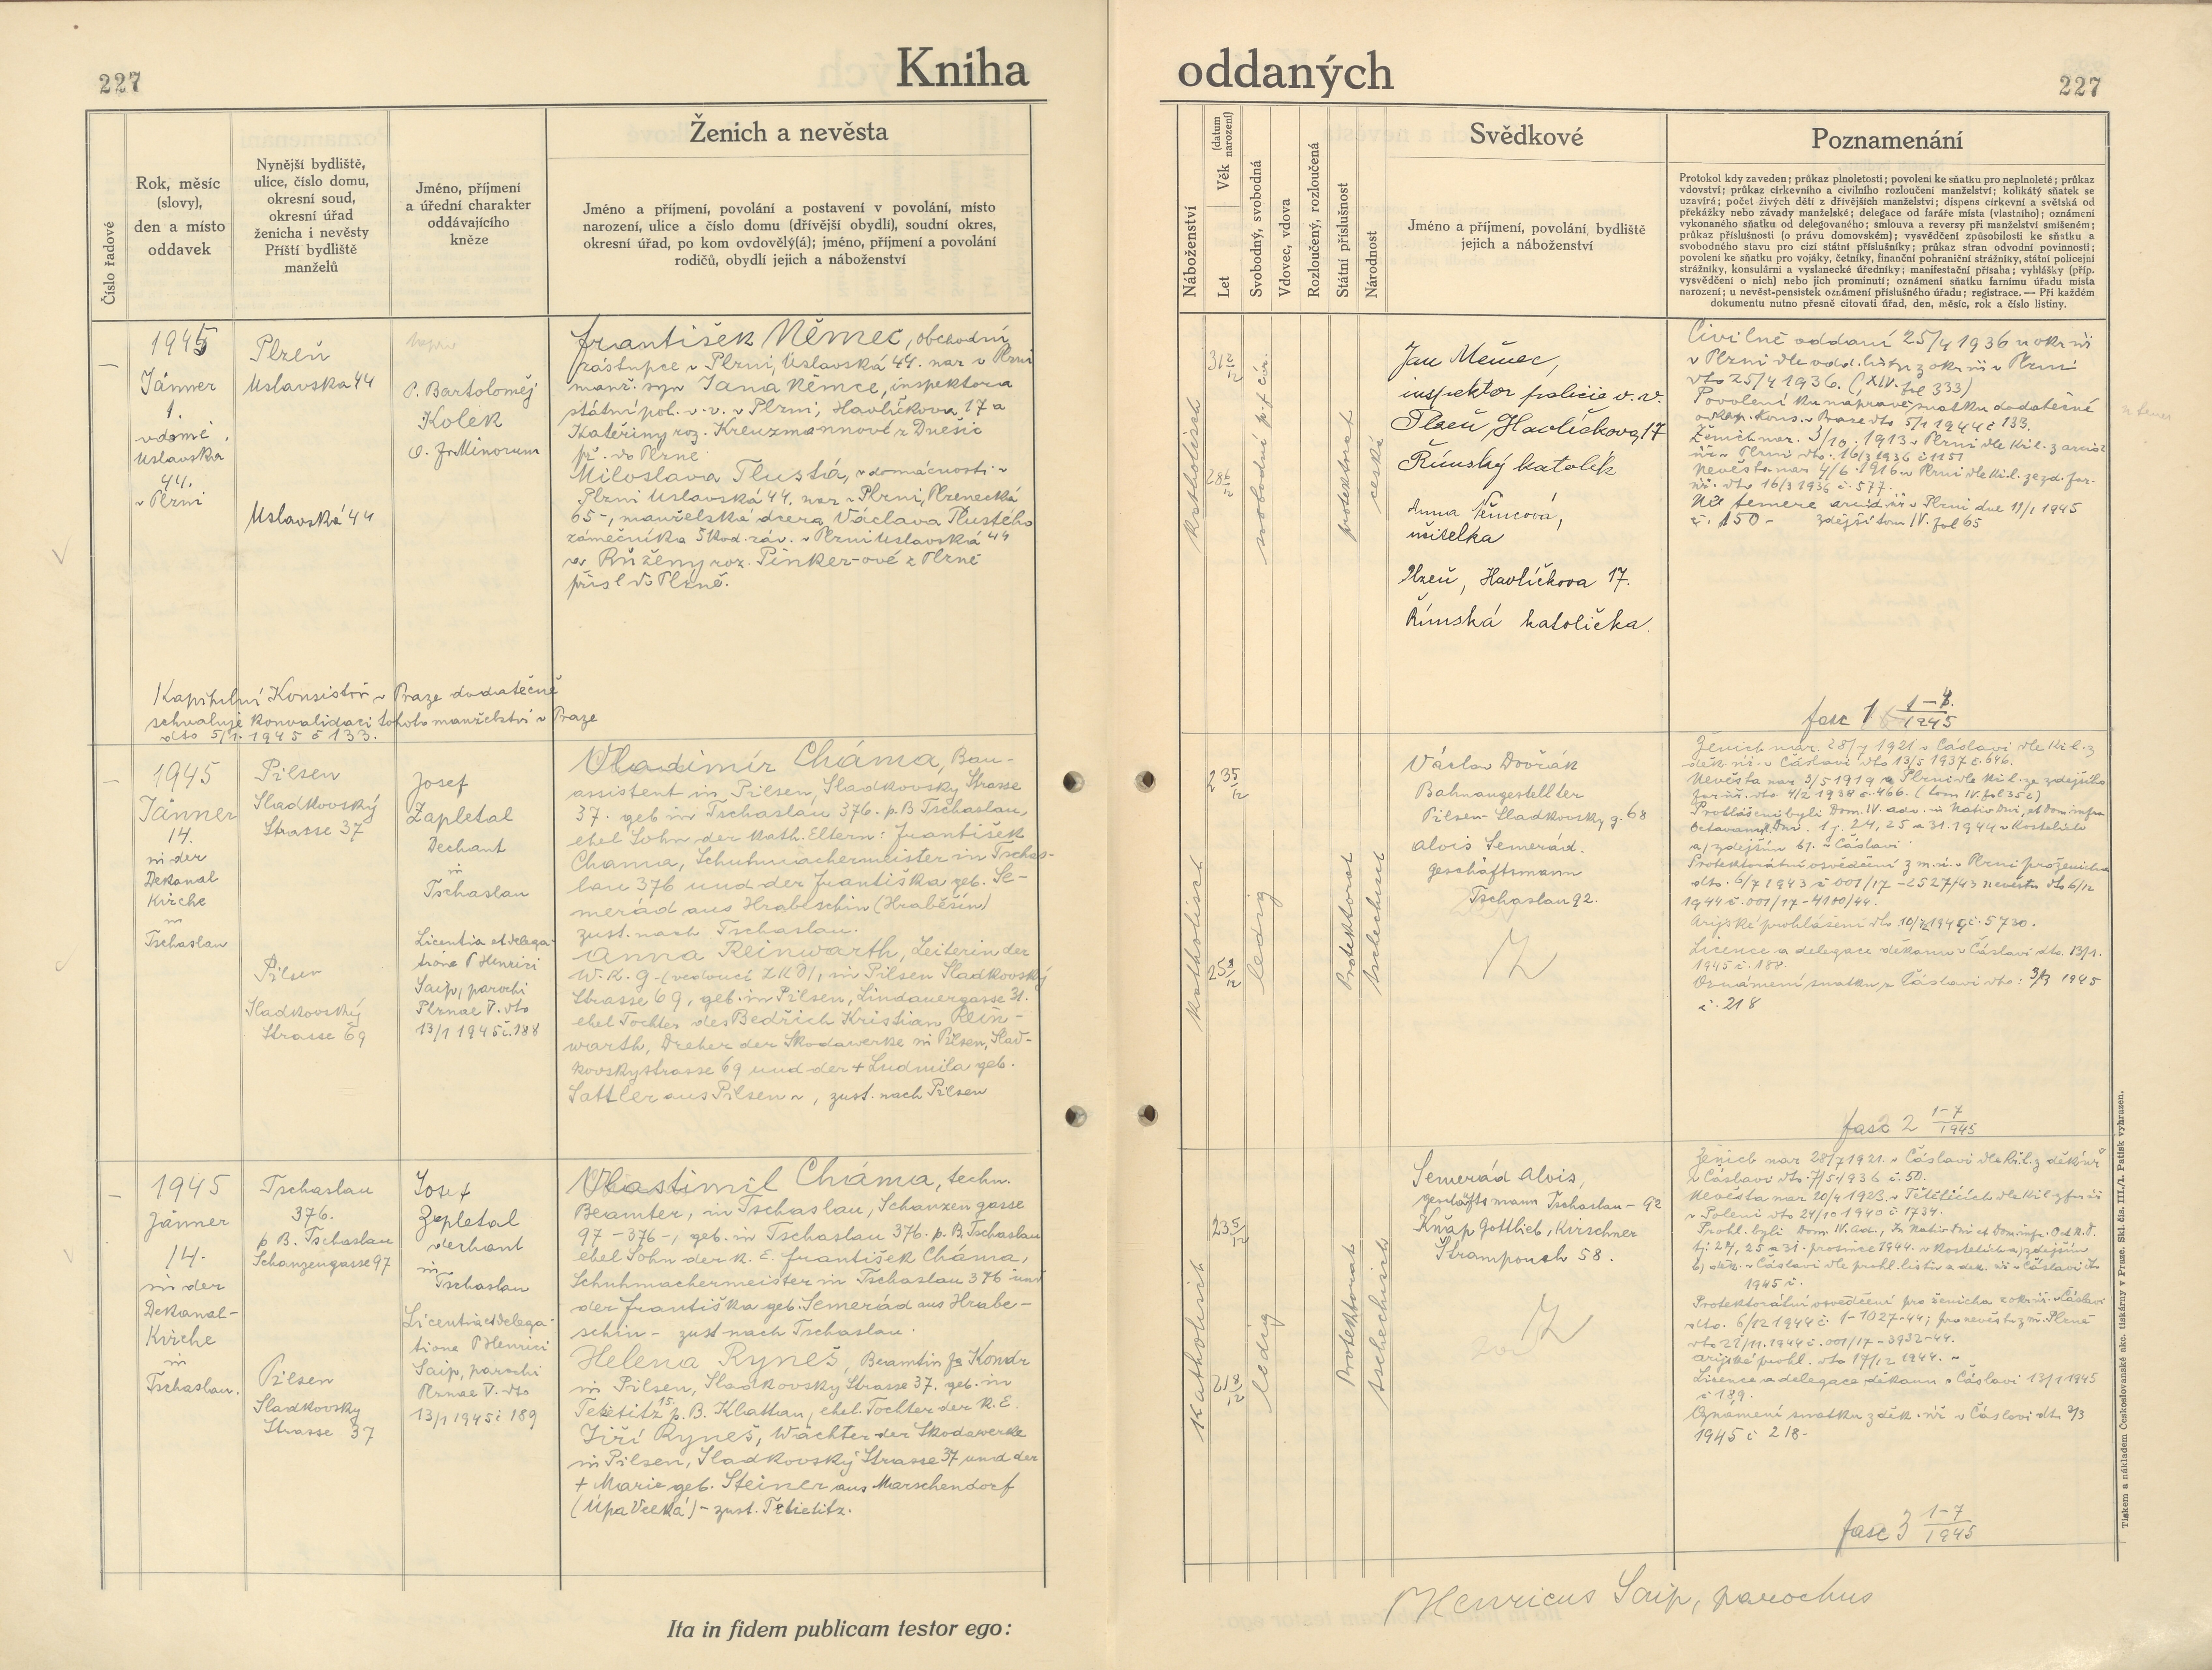 227
Kniha
oddaných
227
Číslo řadové
Rok, měsíc
(slovy),
den a místo
oddavek
Nynější bydliště,
ulice, číslo domu,
okresní soud,
okresní úřad
ženicha i nevěsty
Příští bydliště
manželů
Jméno, příjmení
a úřední charakter
oddávajícího
kněze
Ženich a nevěsta
Jméno a příjmení, povolání a postavení v povolání, místo
narození, ulice a číslo domu (dřívější obydlí), soudní okres,
okresní úřad, po kom ovdovělý(á); jméno, příjmení a povolání
rodičů, obydlí jejich a náboženství
Náboženství
Věk (datum narození)
Let
Svobodný, svobodná
Vdovec, vdova
Rozloučený, rozloučená
Státní příslušnost
Národnost
Svědkové
Jméno a příjmení, povolání, bydliště
jejich a náboženství
Poznamenání
Protokol kdy zaveden; průkaz plnoletosti; povolení ke sňatku pro neplnoleté; průkaz
vdovství; průkaz církevního a civilního rozloučení manželství; kolikátý sňatek se
uzavírá; počet živých dětí z dřívějších manželství; dispens církevní a světská od
překážky nebo závady manželské; delegace od faráře místa (vlastního); oznámení
vykonaného sňatku od delegovaného; smlouva a reversy při manželství smíšeném;
průkaz příslušnosti (o právu domovském); vysvědčení způsobilosti ke sňatku a
svobodného stavu pro cizí státní příslušníky; průkaz stran odvodní povinnosti;
povolení ke sňatku pro vojáky, četníky, finanční pohraniční strážníky, státní policejní
strážníky, konsulární a vyslanecké úředníky; manifestační přísaha; vyhlášky (příp.
vysvědčení o nich) nebo jich prominutí; oznámení sňatku farnímu úřadu místa
narození; u nevěst-pensistek oznámení příslušného úřadu; registrace. — Při každém
dokumentu nutno přesně citovati úřad, den, měsíc, rok a číslo listiny.
1945
Jänner
1.
v domě
Uslavska
44.
v Plzni
Plzeň
Uslavska 44
Uslavská 44
P. Bartoloměj
Kolek
O. Fr. Minorum
František Němec, obchodní
zástupce v Plzni, Uslavská 44. nar v Plzni
manž. syn Jana Němce, inspektora
státní pol. v. v. v Plzni, Havlíčkova 17 a
Kateřiny roz. Kreuzmannové z Dnešic
př. do Plzně
Miloslava Tlustá, v domácnosti v
Plzni Uslavská 44. nar v Plzni, Plzenecká
65-, manželská dcera Václava Tlustého
zámečníka Škod. záv. v Plzni Uslavská 44
a Růženy roz. Pinker-ové z Plzně
přísl do Plzně.
Kapitulní Konsistoř v Praze dodatečně
schvaluje konvalidaci tohoto manželství v Praze
dto 5/1. 1945 č 133.
katholisch
svobodní
protektorat
česká
Jan Němec,
inspektor policie v. v.
Plzeň Havlíčkova, 17
Římský katolík
Anna Němcová,
učitelka
Plzeň, Havlíčkova 17.
Římská katolička.
Civilně oddaní 25/4 1936 u okr. úř
v Plzni dle odd. listu z okr. úř v Plzni
dto 25/4 1936. (XIV. fol 333)
Povolení ku nápravě sňatku dodatečné
Ženich nar. 3/10. 1913 v Plzni dle kř. l. z arcid
úř v Plzni dto. 16/3 1936 č 1151
Nevěsta nar 4/6. 1916 v Plzni dle kř. l. ze zd. far.
úř. dto 16/3 1936 č. 577.
Ne temere arcid. úř v Plzni dne 11/1 1945
č. 150- zdejší tom IV. fol 65
fasc 1 1-8. 1945
1945
Jänner
14.
in der
Dekanal
Kirche
in
Tschaslau
Pilsen
Sladkovský
Strasse 37
Pilsen
Sladkovský
Strasse 69
Josef
Zapletal
Dechant
in
Tschaslau
Licentia et delega-
tione P Henrici
Saip, parochi
Plznae V. dto
13/1 1945 č. 188
Vladimír Cháma, Bau-
assistent in Pilsen, Sladkovský Strasse
37. geb in Tschaslau 376. p. B Tschaslau,
ehel Sohn der kath. Eltern: František
Chama, Schuhmachermeister in Tschas-
lau 376 und der Františka geb. Se-
merád aus Hrabeschin (Hraběšín)
zust. nach Tschaslau.
Anna Reinwarth, Leiterin der
W. K. G. (vedoucí), in Pilsen Sladkovský
Strasse 69, geb. in Pilsen, Lindauergasse 31.
ehel Tochter des Bedřich Kristian Rein-
warth, Dreher der Skodawerke in Pilsen, Slad-
kovskystrasse 69 und der + Ludmila geb.
Sattler aus Pilsen, zust. nach Pilsen
katholisch
ledig
Protektorat
tschechisch
Václav Dvořák
Bahnangestellter
Pilsen-Sladkovsky g. 68
Alois Semerád.
Geschäftsmann
Tschaslau 92.
Ženich nar. 28/7 1921 v Čáslavi dle kř. l. z
děk. úř. v Čáslavi dto 13/5 1937 č. 646.
Nevěsta nar 3/5 1919 v Plzni dle kř. l. ze zdejšího
far. úř. dto 4/2 1938 č. 466. (tom IV. fol 35)
Prohlášeni byli Dom. IV. adv. in Nativ Dni, et Dom infra
Octavam N. Dni. tj. 24, 25 a 31. 1944 v kostelích
a) zdejším b). v Čáslavi
dto. 6/7 1943 č 001/17-2527/43 nevěsta dto 6/12
1944 č. 001/17-4100/44.
Licence a delegace děkanu v Čáslavi dto. 13/1.
1945 č. 188
Oznámení sňatku z Čáslavi dto: 3/3 1945
č. 218
fasc 2 1-7 1945
1945
Jänner
14.
in der
Dekanal-
Kirche
in
Tschaslau.
Tschaslau
376.
p B. Tschaslau
Schanzengasse 97
Pilsen
Sladkovsky
Strasse 37
Josef
Zapletal
dechant
in
Tschaslau
Licentia et delega-
tione P Henrici
Saip, parochi
Plznae V. dto
13/1 1945 č 189
Vlastimil Cháma, techn.
Beamter, in Tschaslau, Schanzengasse
97-376-, geb. in Tschaslau 376. p. B. Tschaslau
ehel Sohn der k. E. František Cháma,
Schuhmachermeister in Tschaslau 376 und
der Františka geb. Semerád aus Hrabe-
schin - zust nach Tschaslau.
Helena Ryneš, Beamtin
in Pilsen, Sladkovský Strasse 37. geb. in
Tetětitz 15. p. B. Klattau, ehel. Tochter der k. E.
Jiří Ryneš, Wächter der Skodawerke
in Pilsen, Sladkovský Strasse 37 und der
+ Marie geb. Steiner aus Marschendorf
(Úpa Velká) - zust. Tetětitz.
Katholisch
ledig
Protektorat
tschechisch
Semerád Alois,
Geschäftsmann Tschaslau-92
Knáp Gottlieb, Kürschner
Strampouch 58.
Ženich nar 28/7 1921. v Čáslavi dle kř. l. z děk. úř
v Čáslavi dto. 7/5 1936 č. 50.
v Poleni dto 24/10 1940 č. 1734.
tj. 24, 25 a 31. prosince 1944. v kostelích a) zdejším
1945 č.
Protektorátní osvědčení pro ženicha z okr. úř. Čáslavi
dto. 6/12 1944 č. 1-1027-44; pro nevěstu z m. Plzně
dto 22/11. 1944 č. 001/17-3932-44.
arijské prohl. dto 17/12 1944.
Licence a delegace děkanu v Čáslavi 13/1 1945
č 189.
Oznámení sňatku z děk. úř v Čáslavi dt. 3/3
1945 č 218-
fasc 3 1-7 1945
Ita in fidem publicam testor ego:
P Henricus Saip, parochus
Tiskem a nákladem Českoslovanské akc. tiskárny v Praze. Skl. čís. III./1. Patisk vyhrazen.